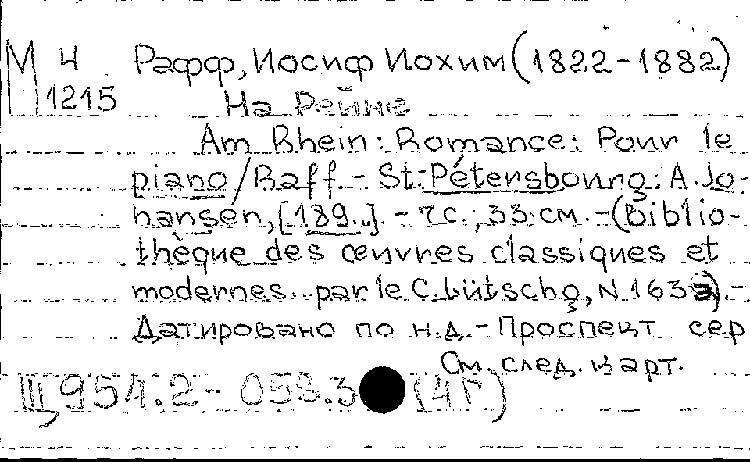 М Ч Рафф, Иосиф Иохим (1822-1882)
1215 На Рейне
Am Rhein: Romance: Pour le
piano / Raff. - St.-Pétersbourg: A. Jo-
hansen, [189..]. - 7 с.; 33 см. - (Biblio-
thèque des œuvres classiques et
modernes.. par le C. Lütschg, N. 163). -
Датировано по н.д. - Проспект сер
См. след. карт.
Щ954.2- 058.3 (4Г)